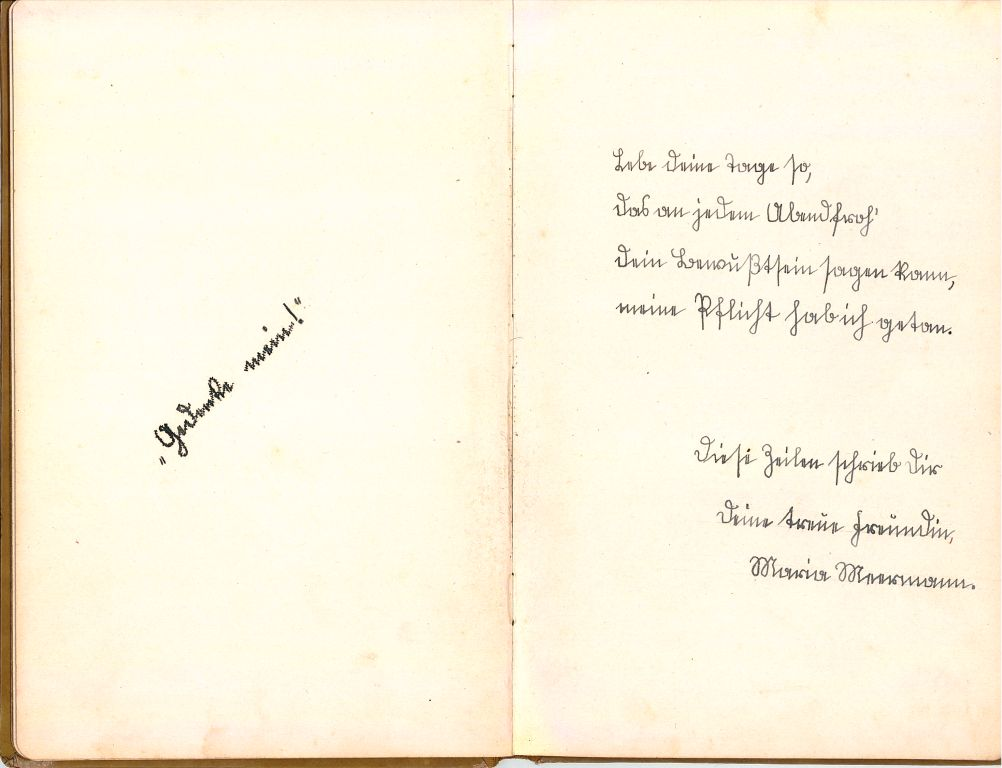 „Gedenke mein!"
Lebe deine Tage so,
das an jedem Abend froh'
dein Bewußtsein sagen kann,
meine Pflicht hab ich getan.
Diese Zeilen schrieb Dir
Deine treue Freundin,
Maria Meermann.